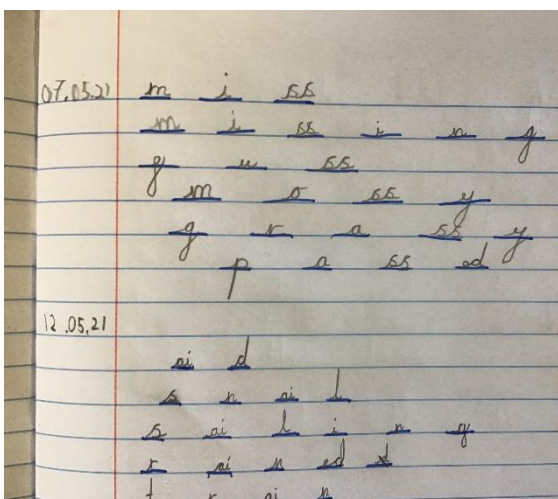 07.05.21 m i ss
m i ss i n g
g u ss
m o ss y
g r a ss y
p a ss ed
12.05.21
ai d
s n ai l
s ai l i n g
r ai n ed d
t r ai n